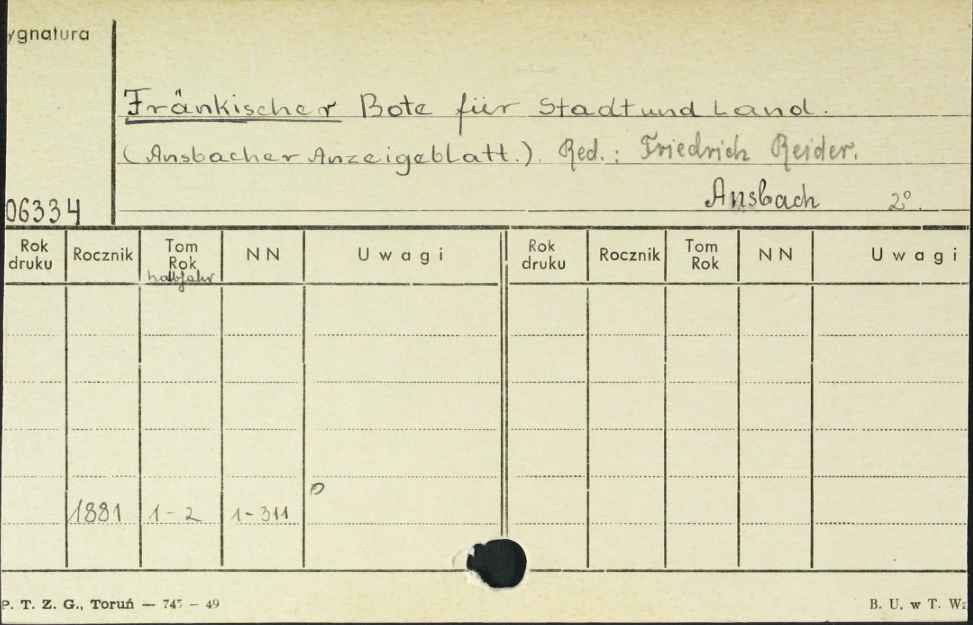 ygnatura
Fränkischer Bote für Stadt und Land.
(Ansbacher Anzeigeblatt.). Red.: Friedrich Reider.
06334 Ansbach 2°.
Rok druku Rocznik Tom Rok NN Uwagi Rok druku Rocznik Tom Rok NN Uwagi
halbjahr
1881 1-2 1-311 0
P. T. Z. G., Toruń — 747 — 49 B. U. w T. Wz